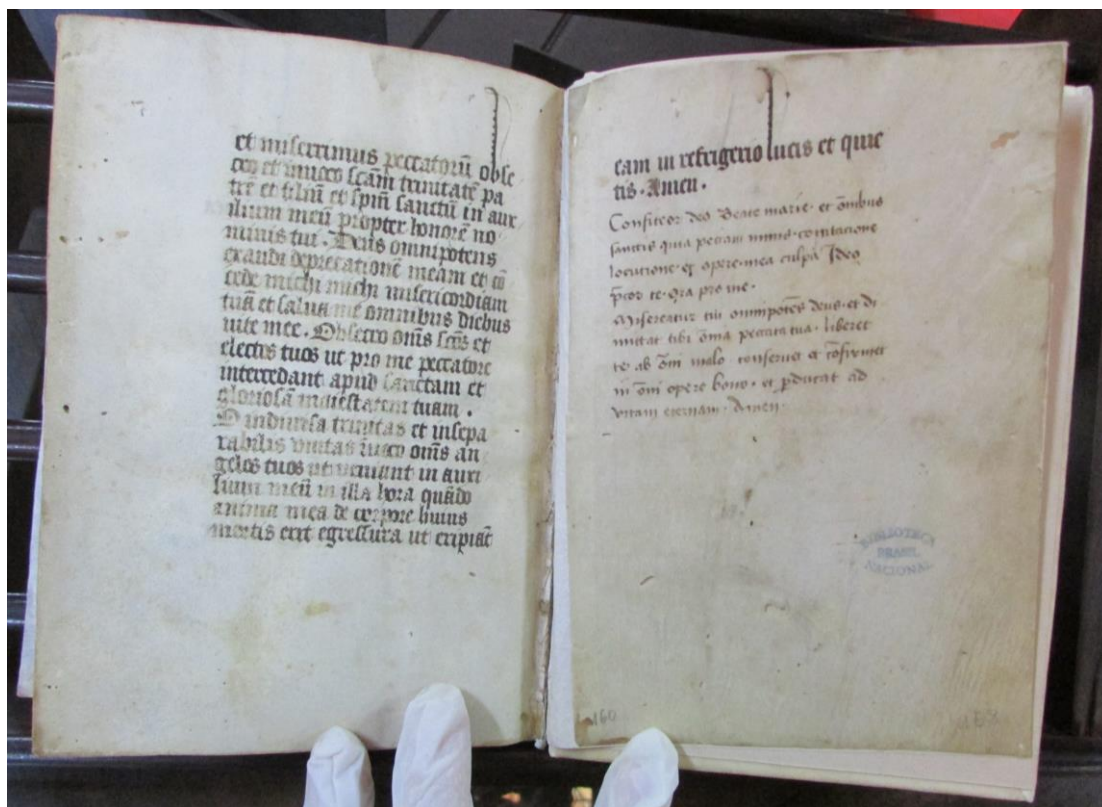 et miserrimus peccatorū obse
cro et inuoco scām trinitatē pa
trē et filiū et spm̄ sanctū in aux
ilium meū propter honorē no
minis tui. Deus omnipotens
exaudi deprecationē meam et cō
cede michi michi misericordiam
tuā et salua me omnibus diebus
uite mee. Obsecro om̄s scōs et
electos tuos ut pro me peccatore
intercedant apud sanctam et
gloriosā maiestatem tuam.
O indiuisa trinitas et insepa
rabilis vnitas inuoco om̄s an
gelos tuos ut ueniant in auxi
lium meū in illa hora quādo
anima mea de corpore huius
mortis erit egressura ut eripiāt
eam in refrigerio lucis et quie
tis. Amen.
Confiteor deo Beate marie. et ōmibus
sanctis quia peccaui nimis. cogitacione
locutione. et opere. mea culpa Ideo
p̄cor te. Ora pro me.
Misereatur tui omnipotēs deus. et di
mittat tibi ōmia peccata tua. liberet
te ab ōmi malo. conseruet et cōfirmet
in ōmi opere bono. et p̄ducat ad
vitam eternam. Amen.
BIBLIOTECA
BRASIL
NACIONAL
160